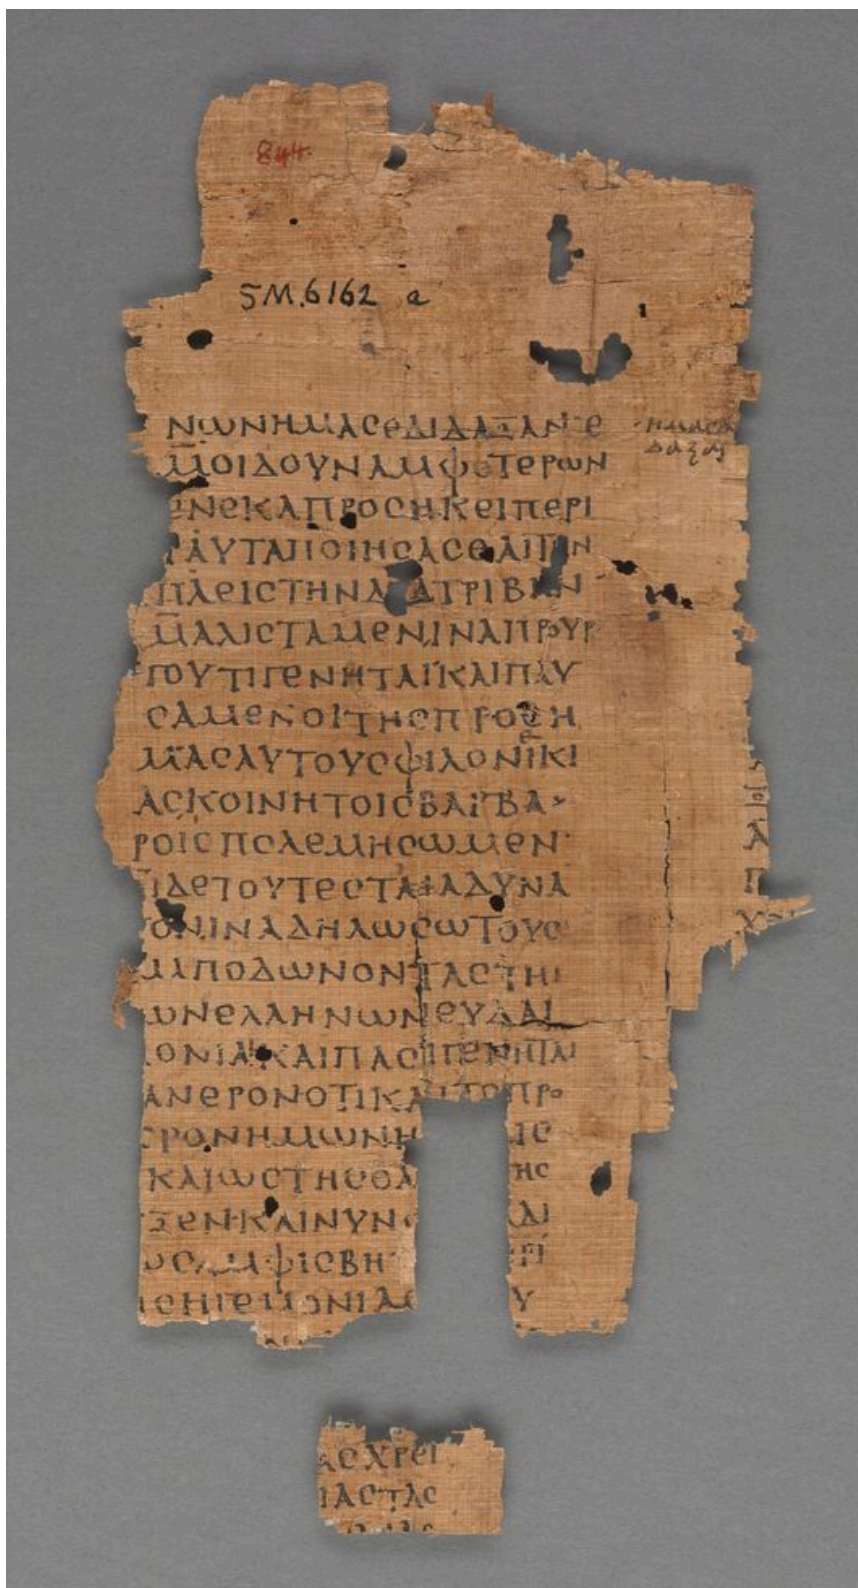 844.
SM.6162 a
ΝΩΝΗΜΑСΕΔΙΔΑΞΑΝΕ
ΗΜΑС
ΔΑΞΑΝ
ΜΟΙΔΟΥΝΑΜΦΟΤΕΡΩΝ
ΕΝΕΚΑΠΡΟСΗΚΕΙΠΕΡΙ
ΤΑΥΤΑΠΟΙΗСΑСΘΑΙΤΗΝ
ΠΛΕΙСΤΗΝΔΙΑΤΡΙΒΗΝ
ΜΑΛΙСΤΑΜΕΝΙΝΑΠΡΟΥΡ
ΓΟΥΤΙΓΕΝΗΤΑΙΚΑΙΠΑΥ
СΑΜΕΝΟΙΤΗСΠΡΟСΗ
ΜΑСΑΥΤΟΥСΦΙΛΟΝΙΚΙ
ΑСΚΟΙΝΗΤΟΙСΒΑΡΒΑ
ΡΟΙСΠΟΛΕΜΗСΩΜΕΝ
ΙΔΕΤΟΥΤΕСΤΑΙΑΔΥΝΑ
ΤΟΝΙΝΑΔΗΛΩСΩΤΟΥС
ΜΠΟΔΩΝΟΝΤΑСΤΗΙ
ΩΝΕΛΛΗΝΩΝΕΥΔΑΙ
ΜΟΝΙΑΚΑΙΠΑСΙΓΕΝΗΤΑΙ
ΑΝΕΡΟΝΟΤΙΚΑΙΤΟΠΡΟ
ΕΡΟΝΗΜΩΝΗ ΙС
ΚΑΙΩСΤΗСΘΑ ΗС
ΞΕΝΚΑΙΝΥΝ ΔΙ
ΩСΑΜΦΙСΒΗ
СΗΓΕΜΟΝΙΑС Υ
ΑСΧΡΕΙ
ΙΑСΤΑС